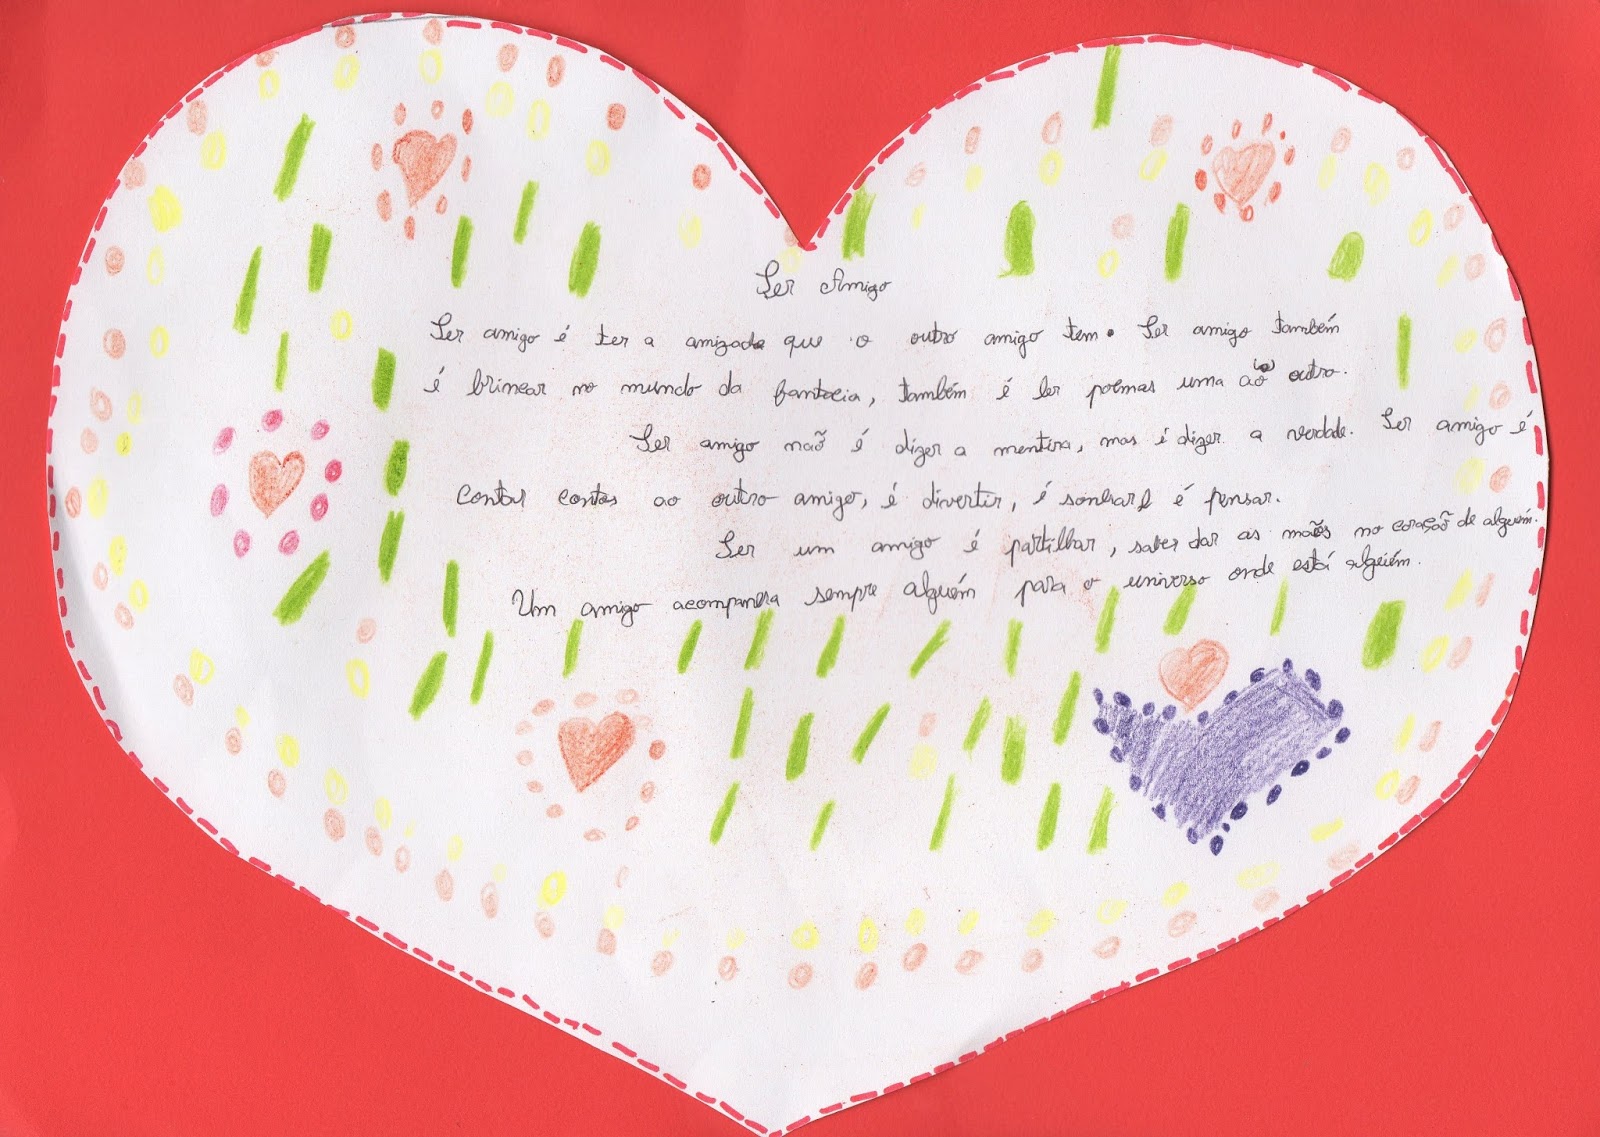 Ser Amigo
Ser amigo é ter a amizade que o outro amigo tem. Ser amigo também
é brincar no mundo da fantacia, também é ler poemas uma ao (ao) outro.
Ser amigo não é dizer a mentira, mas é dizer a verdade. Ser amigo é
contar contos ao outro amigo, é divertir, é sonhar e é pensar.
Ser um amigo é partilhar, saber dar as mãos no coração de alguém.
Um amigo acompanha sempre alguém para o universo onde está alguém.